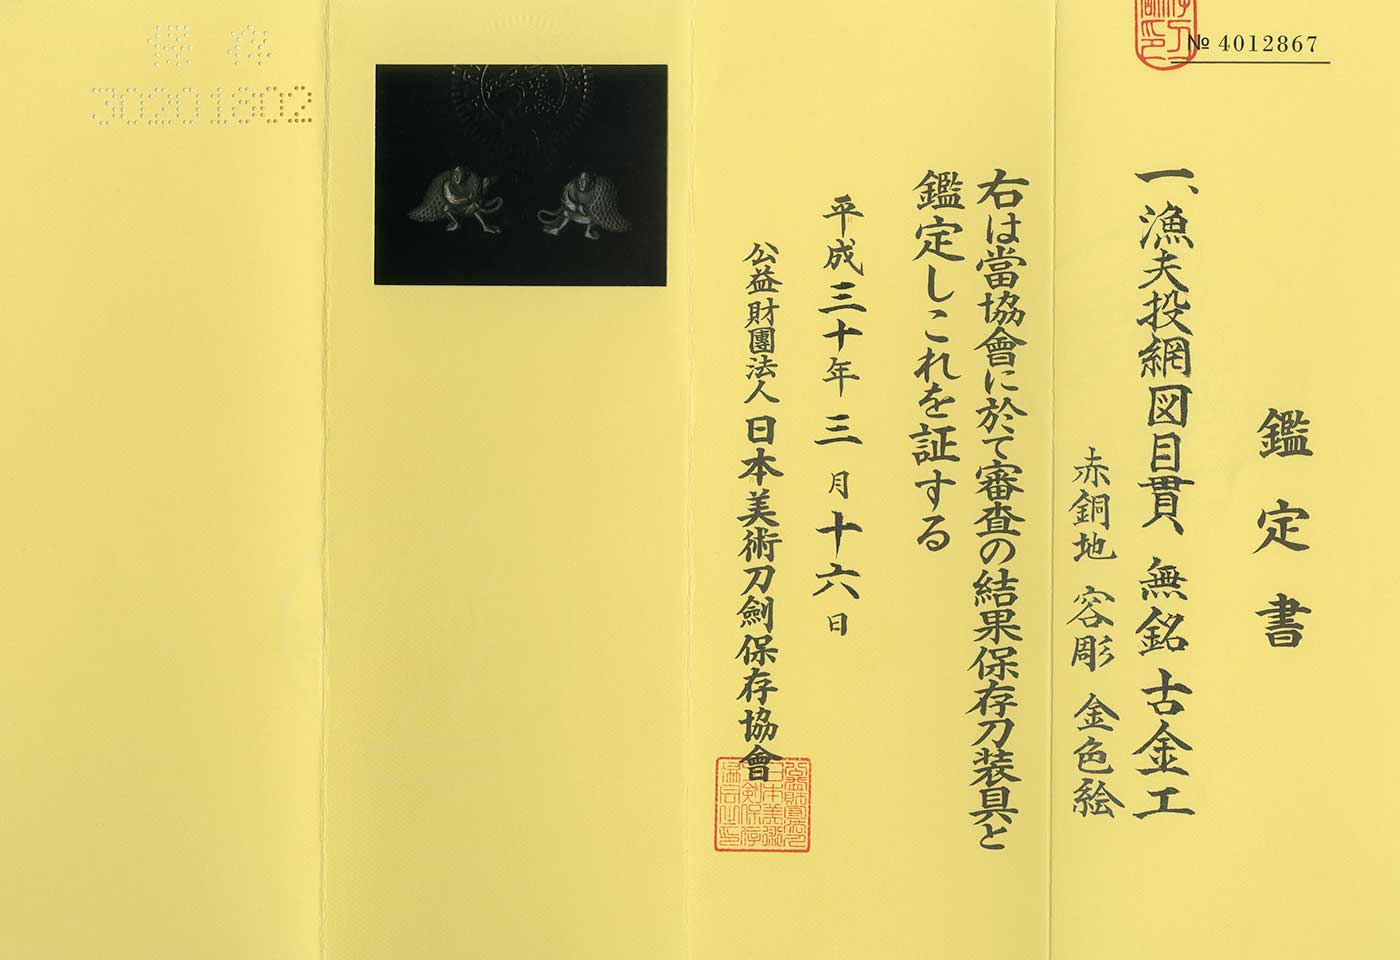 № 4012867
鑑定書
一、漁夫投網図目貫 無銘 古金工
赤銅地 容彫 金色絵
右は當協會に於て審査の結果保存刀装具と
鑑定しこれを証する
平成三十年三月十六日
公益財團法人 日本美術刀劍保存協會
保存
30201802